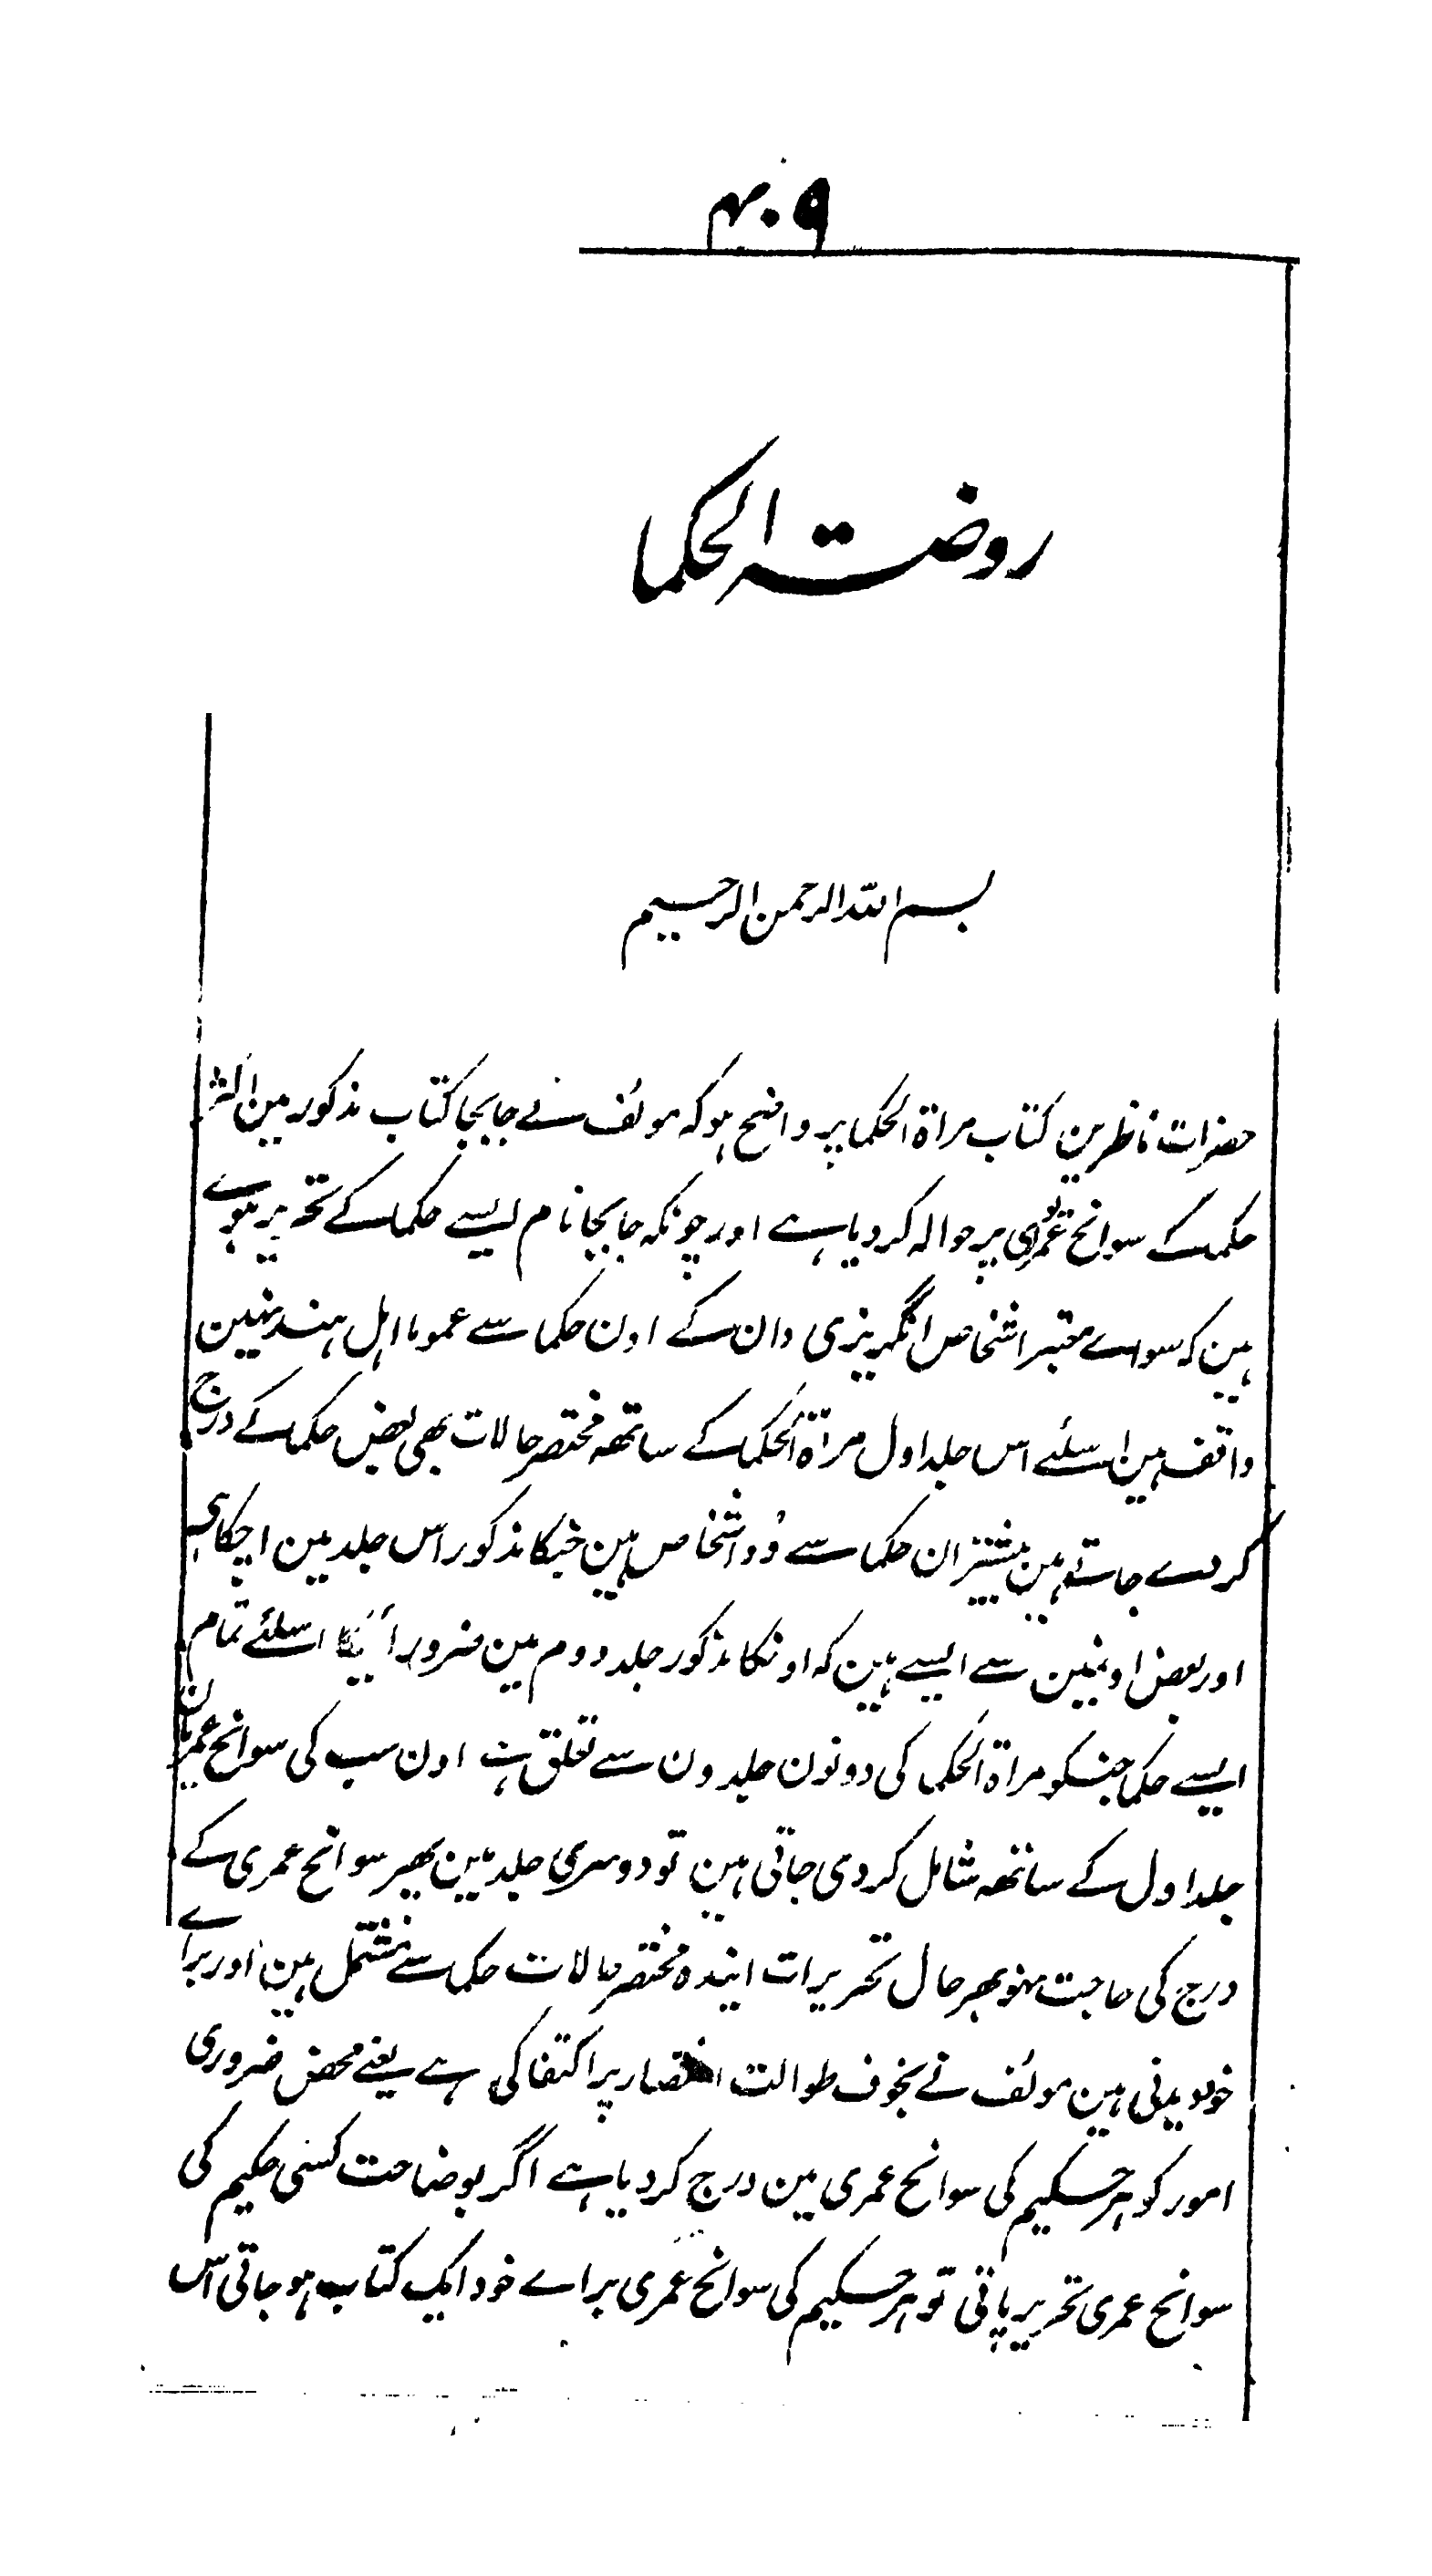 ۴۰۹
روضتہ الحکما
بسم اللہ الرحمن الرحیم
حضرات ناظرین کتاب مراۃ الحکما پر واضح ہو کہ مولف نے جابجا کتاب مذکور مین اکثر
حکما کے سوانح عمری پر حوالہ کر دیا ہے اور چونکہ جابجا نام ایسے حکما کے تحریر ہوے
ہین کہ سواے معتبر اشخاص انگریزی دان کے اون حکما سے عموما اہل ہند نہین
واقف ہین اسلئے اس جلد اول مراۃ الحکما کے ساتھہ مختصر حالات بھی بعض حکما کے درج
کر دے جاتے ہین بیشتر ان حکما سے وہ اشخاص ہین جنکا مذکور اس جلد مین اچکا ہے
اور بعض اونمین سے ایسے ہین کہ اونکا مذکور جلد دوم مین ضرور آئیگا اسلئے تمام
ایسے حکما جنکو مراۃ الحکما کی دونون جلدون سے تعلق ہے اون سب کی سوانح عمریان
جلد اول کے ساتھہ شامل کر دی جاتی ہین تو دوسری جلد مین پھر سوانح عمری کے
درج کی حاجت نہو بہر حال تحریرات ایندہ مختصر حالات حکما سے مشتمل ہین اور براے
خود دیدنی ہین مولف نے بخوف طوالت اختصار پر اکتفا کی ہے یعنے محض ضروری
امور کو ہر حکیم کی سوانح عمری مین درج کر دیا ہے اگر بوضاحت کسی حکیم کی
سوانح عمری تحریر پاتی تو ہر حکیم کی سوانح عمری براے خود ایک کتاب ہو جاتی اس